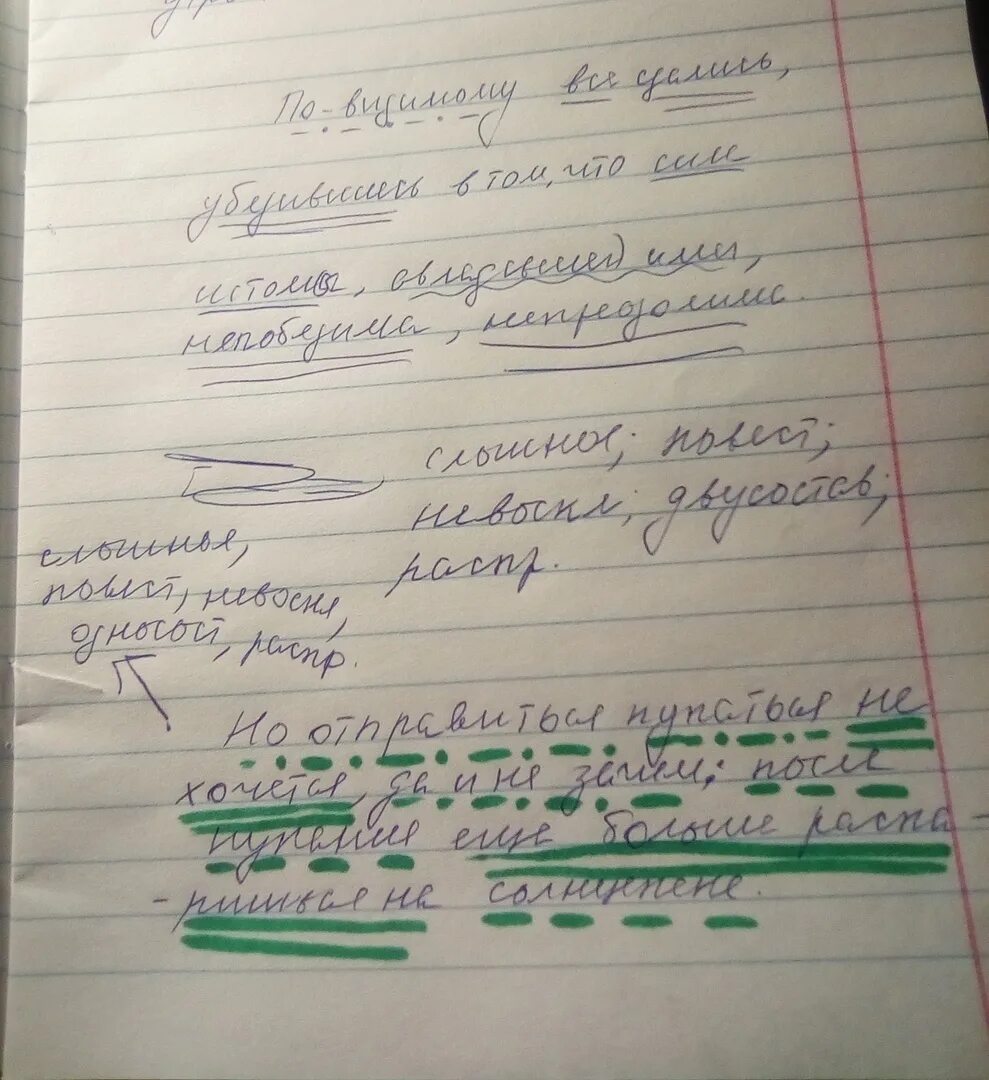 По-видимому все сдались,
убедившись в том, что сил
истомы, овладевшей ими,
непобедима, непреодолима.
сложное; повест;
невоскл; двусостав;
распр.
сложная,
повест, невоскл,
односост, распр.
Но отправиться купаться не
хочется, да и не зачем; после
купания еще больше распа-
-ришься на солнцепеке.